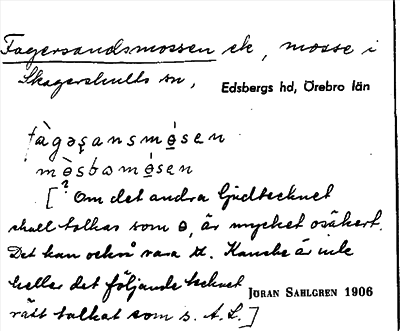 Fagersandsmossen ek, mosse i
Skagershults sn,
Edsbergs hd, Örebro län
fàgəʂansmósen
mòsbɷmósen
[? Om det andra ljudtecknet
skall tolkas som ɵ, är mycket osäkert.
Det kan också vara α. Kanske är icke
heller det följande tecknet
JÖRAN SAHLGREN 1906
rätt tolkat som s. A.L.]